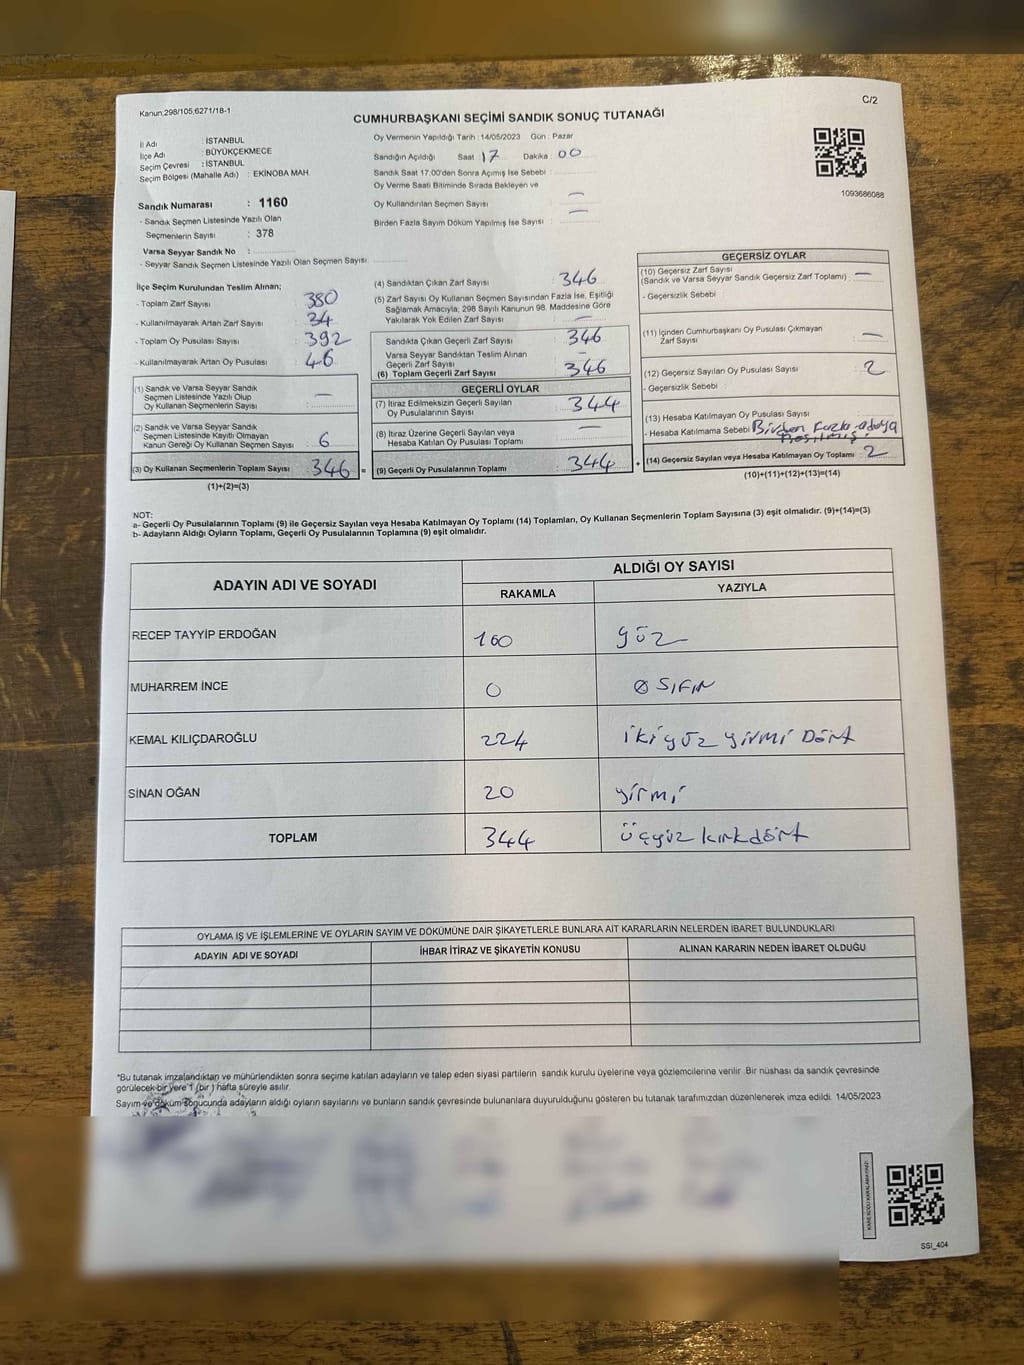 Kanun,298/105,6271/18-1
C/2
CUMHURBAŞKANI SEÇİMİ SANDIK SONUÇ TUTANAĞI
İl Adı : İSTANBUL
İlçe Adı : BÜYÜKÇEKMECE
Seçim Çevresi : İSTANBUL
Seçim Bölgesi (Mahalle Adı) : EKİNOBA MAH.
Sandık Numarası : 1160
- Sandık Seçmen Listesinde Yazılı Olan
Seçmenlerin Sayısı : 378
Varsa Seyyar Sandık No :
- Seyyar Sandık Seçmen Listesinde Yazılı Olan Seçmen Sayısı
Oy Vermenin Yapıldığı Tarih : 14/05/2023 Gün : Pazar
Sandığın Açıldığı Saat : 17 Dakika : 00
Sandık Saat 17:00'den Sonra Açımış İse Sebebi :
Oy Verme Saati Bitiminde Sırada Bekleyen ve
Oy Kullandırılan Seçmen Sayısı : —
Birden Fazla Sayım Döküm Yapılmış İse Sayısı : —
1093686088
İlçe Seçim Kurulundan Teslim Alınan;
- Toplam Zarf Sayısı : 380
- Kullanılmayarak Artan Zarf Sayısı : 34
- Toplam Oy Pusulası Sayısı : 392
- Kullanılmayarak Artan Oy Pusulası : 46
(1) Sandık ve Varsa Seyyar Sandık
Seçmen Listesinde Yazılı Olup
Oy Kullanan Seçmenlerin Sayısı : —
(2) Sandık ve Varsa Seyyar Sandık
Seçmen Listesinde Kayıtlı Olmayan
Kanun Gereği Oy Kullanan Seçmen Sayısı : 6
(3) Oy Kullanan Seçmenlerin Toplam Sayısı : 346 =
(1)+(2)=(3)
(4) Sandıktan Çıkan Zarf Sayısı : 346
(5) Zarf Sayısı Oy Kullanan Seçmen Sayısından Fazla İse, Eşitliği
Sağlamak Amacıyla; 298 Sayılı Kanunun 98. Maddesine Göre
Yakılarak Yok Edilen Zarf Sayısı : —
Sandıkta Çıkan Geçerli Zarf Sayısı : 346
Varsa Seyyar Sandıktan Teslim Alınan
Geçerli Zarf Sayısı : —
(6) Toplam Geçerli Zarf Sayısı : 346
GEÇERLİ OYLAR
(7) İtiraz Edilmeksizin Geçerli Sayılan
Oy Pusulalarının Sayısı : 344
(8) İtiraz Üzerine Geçerli Sayılan veya
Hesaba Katılan Oy Pusulası Toplamı : —
(9) Geçerli Oy Pusulalarının Toplamı : 344 +
GEÇERSİZ OYLAR
(10) Geçersiz Zarf Sayısı
(Sandık ve Varsa Seyyar Sandık Geçersiz Zarf Toplamı) : —
- Geçersizlik Sebebi :
(11) İçinden Cumhurbaşkanı Oy Pusulası Çıkmayan
Zarf Sayısı : —
(12) Geçersiz Sayılan Oy Pusulası Sayısı : 2
- Geçersizlik Sebebi :
(13) Hesaba Katılmayan Oy Pusulası Sayısı :
- Hesaba Katılmama Sebebi : Birden Fazla adaya
Basılmış.
(14) Geçersiz Sayılan veya Hesaba Katılmayan Oy Toplamı : 2
(10)+(11)+(12)+(13)=(14)
NOT:
a- Geçerli Oy Pusulalarının Toplamı (9) ile Geçersiz Sayılan veya Hesaba Katılmayan Oy Toplamı (14) Toplamları, Oy Kullanan Seçmenlerin Toplam Sayısına (3) eşit olmalıdır. (9)+(14)=(3)
b- Adayların Aldığı Oyların Toplamı, Geçerli Oy Pusulalarının Toplamına (9) eşit olmalıdır.
ADAYIN ADI VE SOYADI
ALDIĞI OY SAYISI
RAKAMLA YAZIYLA
RECEP TAYYİP ERDOĞAN 100 yüz
MUHARREM İNCE 0 Ø SIFIR
KEMAL KILIÇDAROĞLU 224 ikiyüz yirmi Dört
SİNAN OĞAN 20 yirmi
TOPLAM 344 üçyüz kırkdört
OYLAMA İŞ VE İŞLEMLERİNE VE OYLARIN SAYIM VE DÖKÜMÜNE DAİR ŞİKAYETLERLE BUNLARA AİT KARARLARIN NELERDEN İBARET BULUNDUKLARI
ADAYIN ADI VE SOYADI İHBAR İTİRAZ VE ŞİKAYETİN KONUSU ALINAN KARARIN NEDEN İBARET OLDUĞU
*Bu tutanak imzalandıktan ve mühürlendikten sonra seçime katılan adayların ve talep eden siyasi partilerin sandık kurulu üyelerine veya gözlemcilerine verilir. Bir nüshası da sandık çevresinde
görülecek bir yere 1 (bir) hafta süreyle asılır.
Sayım ve döküm sonucunda adayların aldığı oyların sayılarını ve bunların sandık çevresinde bulunanlara duyurulduğunu gösteren bu tutanak tarafımızdan düzenlenerek imza edildi. 14/05/2023
KARE KODU KARALAMAYINIZ!
SSI_404